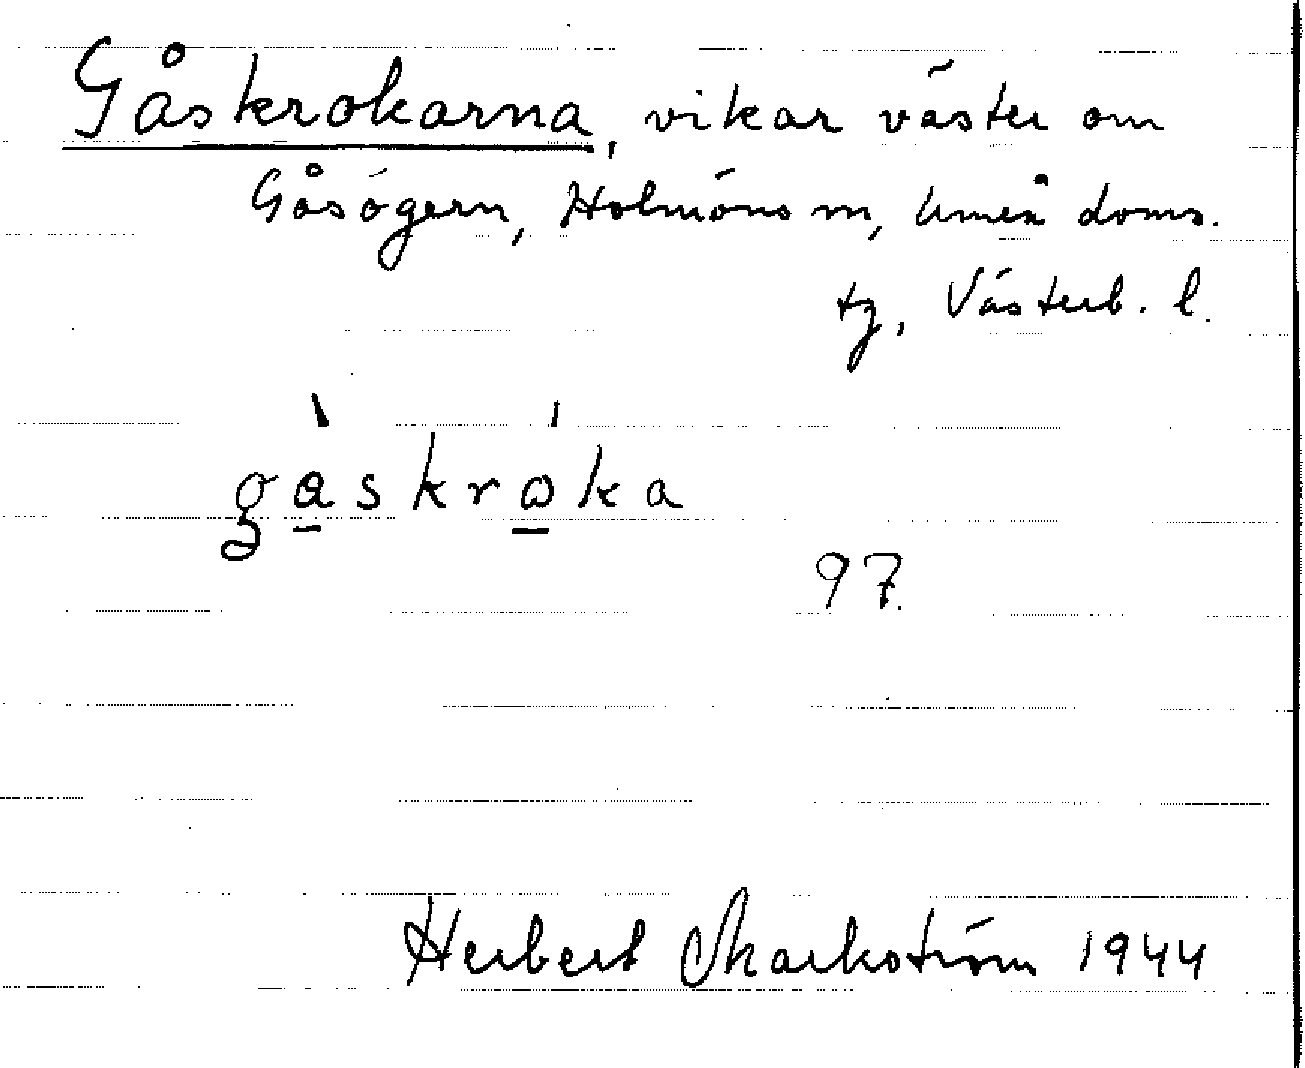 Gåskrokarna, vikar väster om
Gåsögern, Holmöns sn, Umeå doms.
tg, Västerb. l.
gåskroka
97.
Herbert Markström 1944